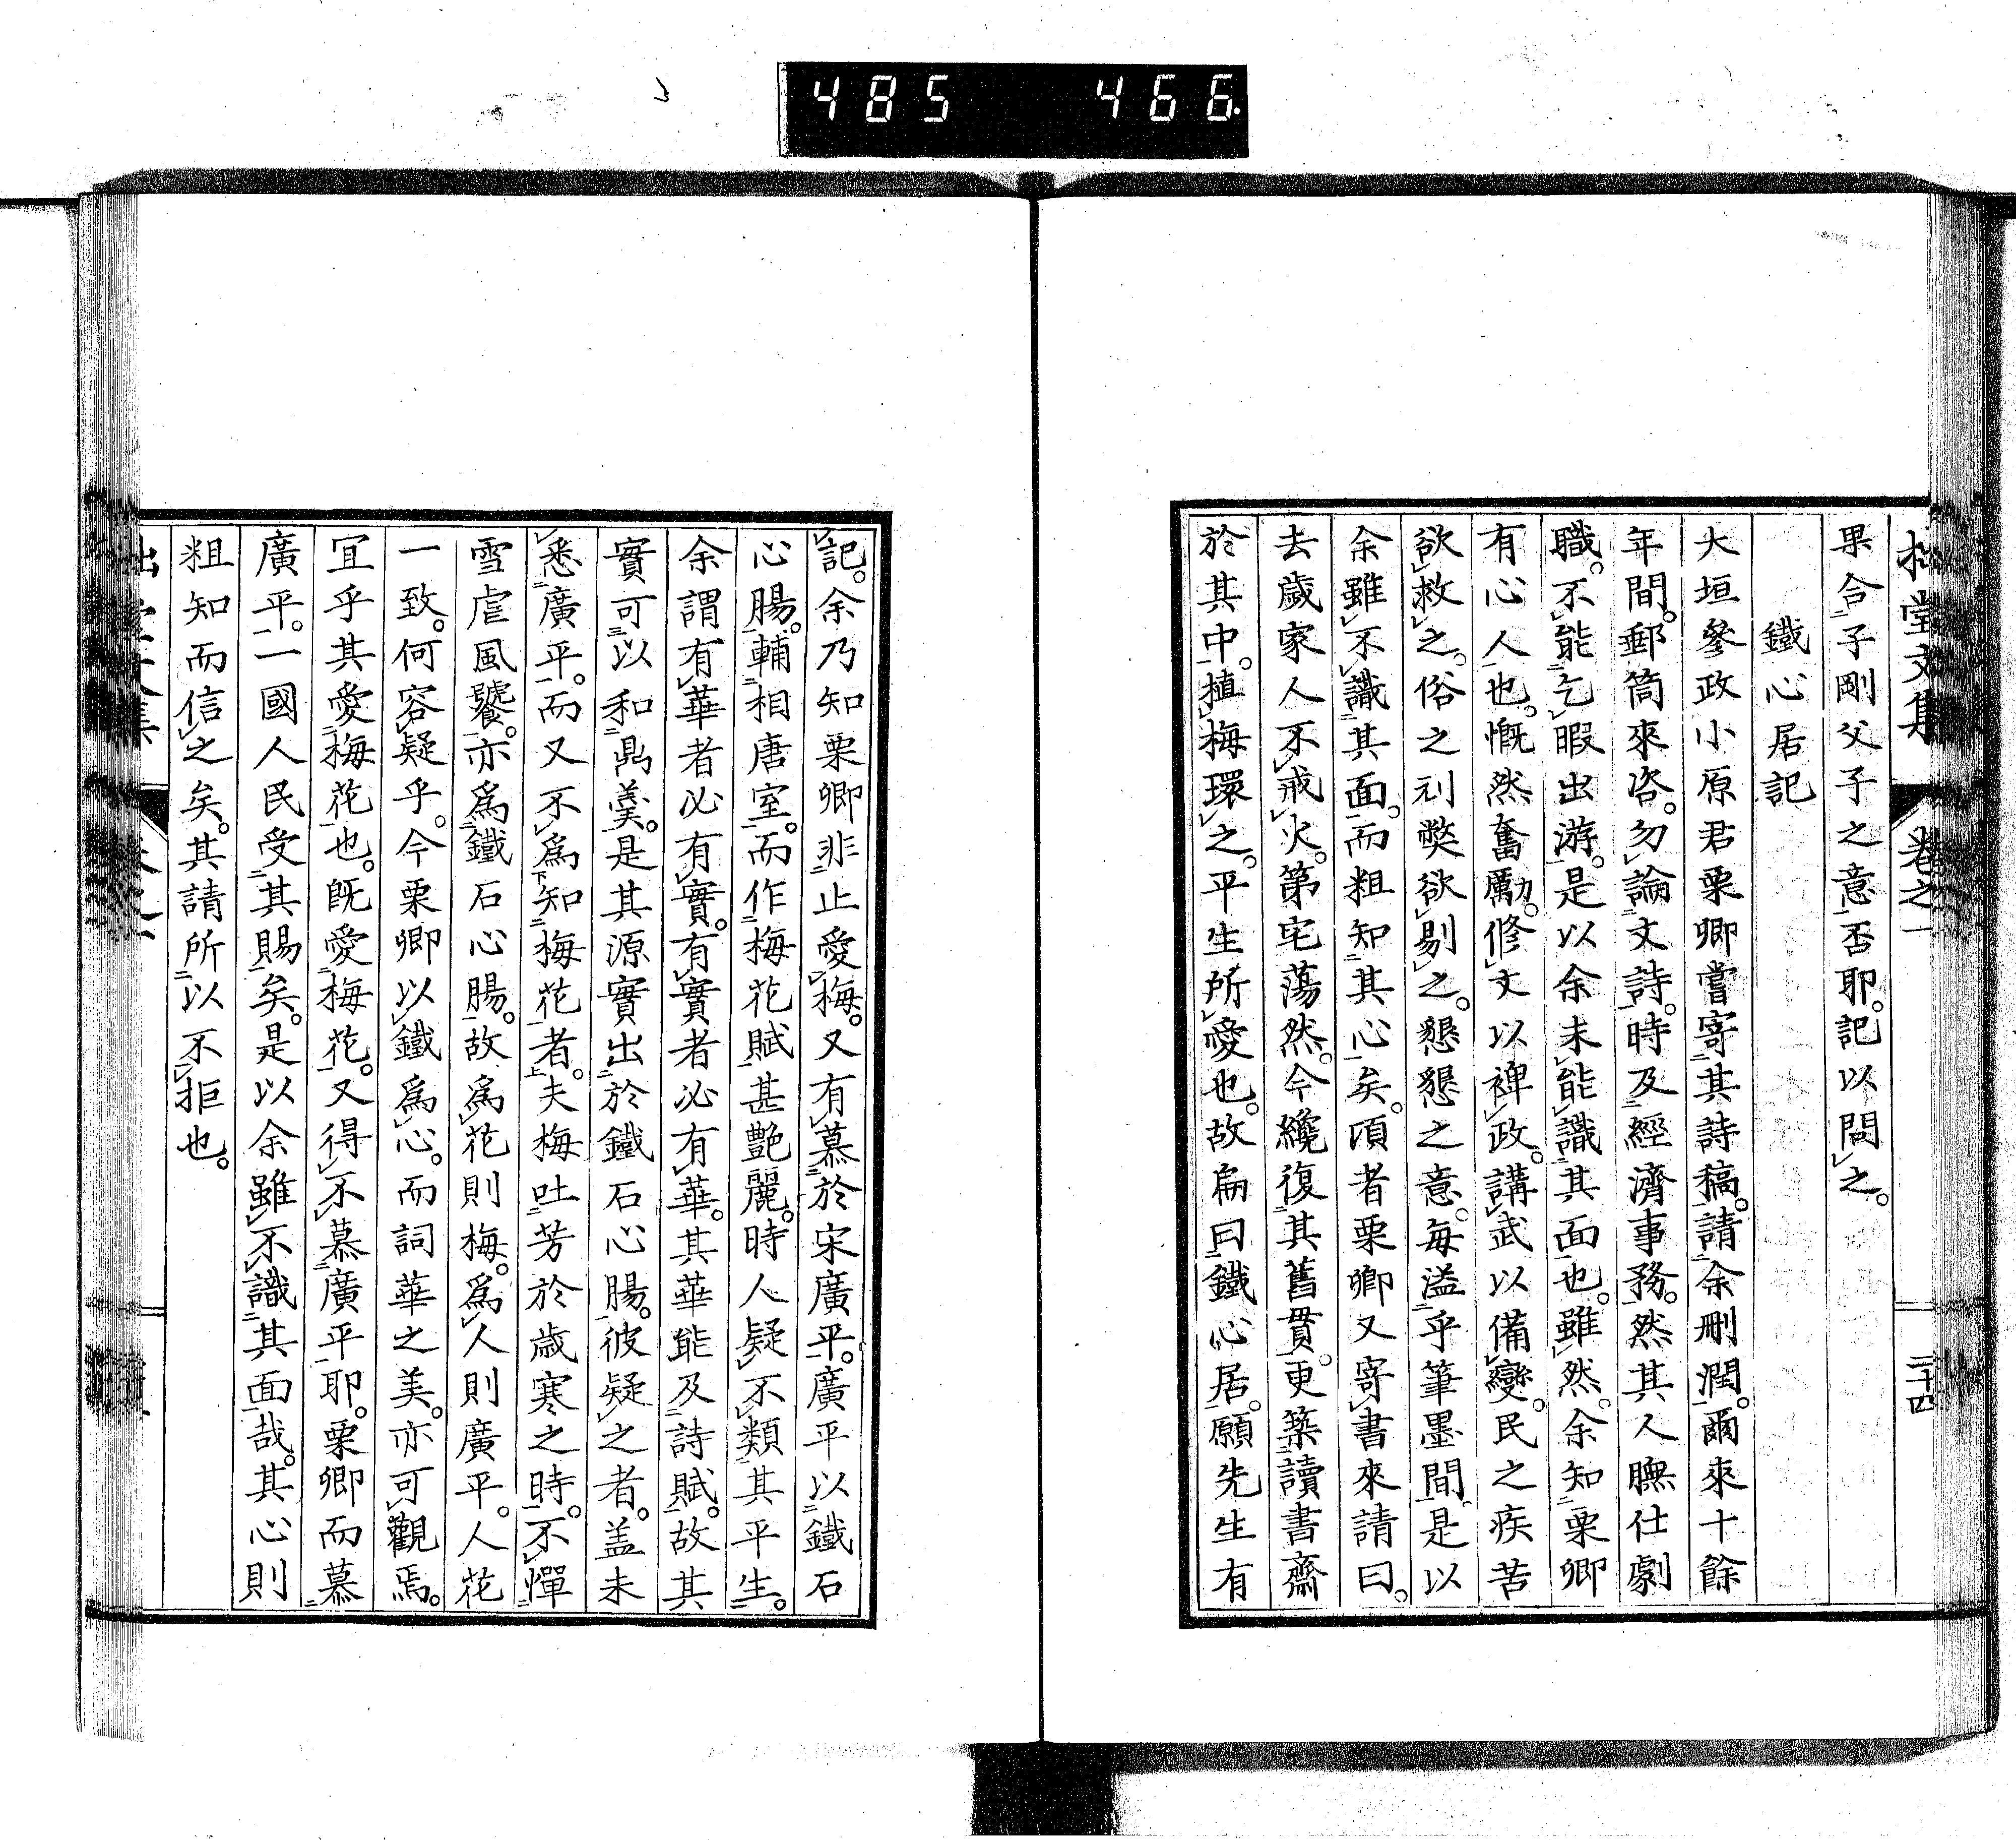 485 466
拙堂文集 卷之一 二十四
果合子剛父子之意否耶。記以問之。
鐵心居記
大垣參政小原君栗卿嘗寄其詩稿。請余刪潤。爾來十餘
年間。郵筒來咨。勿論文詩。時及經濟事務。然其人膴仕劇
職。不能乞暇出游。是以余未能識其面也。雖然。余知栗卿
有心人也。慨然奮勵。修文以裨政。講武以備變。民之疾苦
欲救之。俗之刓弊欲剔之。懇懇之意。每溢乎筆墨間。是以
余雖不識其面。而粗知其心矣。頃者栗卿又寄書來請曰。
去歲家人不戒火。第宅蕩然。今纔復其舊貫。更築讀書齋
於其中。植梅環之。平生所愛也。故扁曰鐵心居。願先生有
記。余乃知栗卿非止愛梅。又有慕於宋廣平。廣平以鐵石
心腸。輔相唐室。而作梅花賦甚艷麗。時人疑不類其平生。
余謂有華者必有實。有實者必有華。其華能及詩賦。故其
實可以和鼎羹。是其源實出於鐵石心腸。彼疑之者。盖未
悉廣平。而又不為知梅花者。夫梅吐芳於歲寒之時。不憚
雪虐風饕。亦為鐵石心腸。故為花則梅。為人則廣平。人花
一致。何容疑乎。今栗卿以鐵為心。而詞華之美。亦可觀焉。
宜乎其愛梅花也。既愛梅花。又得不慕廣平耶。栗卿而慕
廣平。一國人民受其賜矣。是以余雖不識其面哉。其心則
粗知而信之矣。其請所以不拒也。